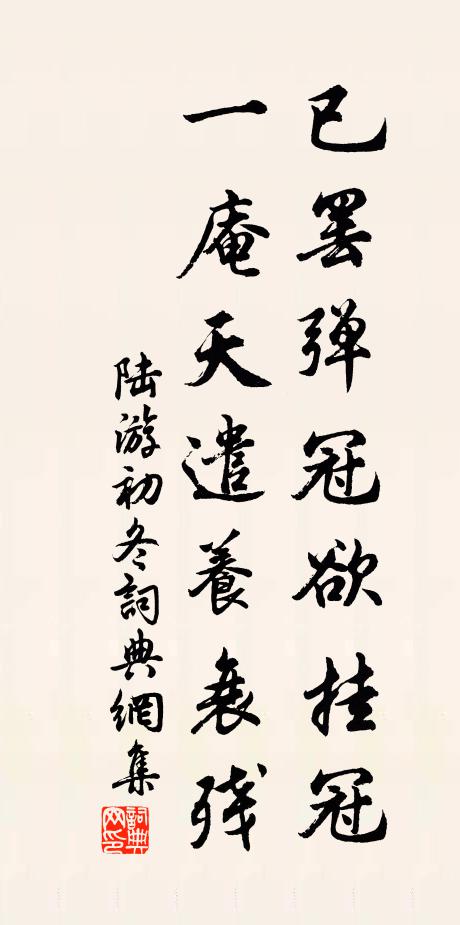 已罢弹冠欲挂冠
一庵天遣養衰残
陆游初冬詞典網集
詞典网印